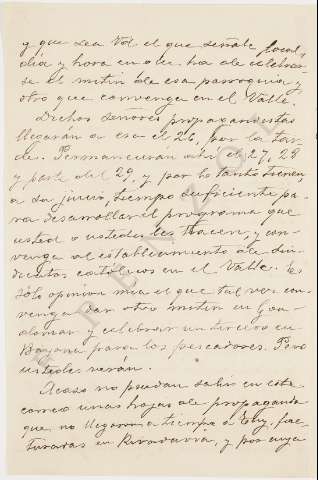 y que sea Vd. el que señale local,
día y hora en que ha de celebrar-
se el mitin de esa parroquia, y
otro que convenga en el Valle.
Dichos señores propagandistas
llegarán a esa el 26, por la tar-
de. Permanecerán ahí el 27, 28
y parte del 29, y por lo tanto tienen,
a su juicio, tiempo suficiente pa-
ra desarrollar el programa que
usted o ustedes les tracen, y con-
venga al establecimiento de sin-
dicatos católicos en el Valle. Es
sólo opinión mía el que tal vez con-
venga dar otro mitin en Gon-
domar y celebrar un tercero en
Bayona para los pescadores. Pero
ustedes verán.
Acaso no puedan salir en este
correo unas hojas de propaganda
que no llegaron a tiempo a Tuy, fac-
turadas en Rivadavia, y por cuya